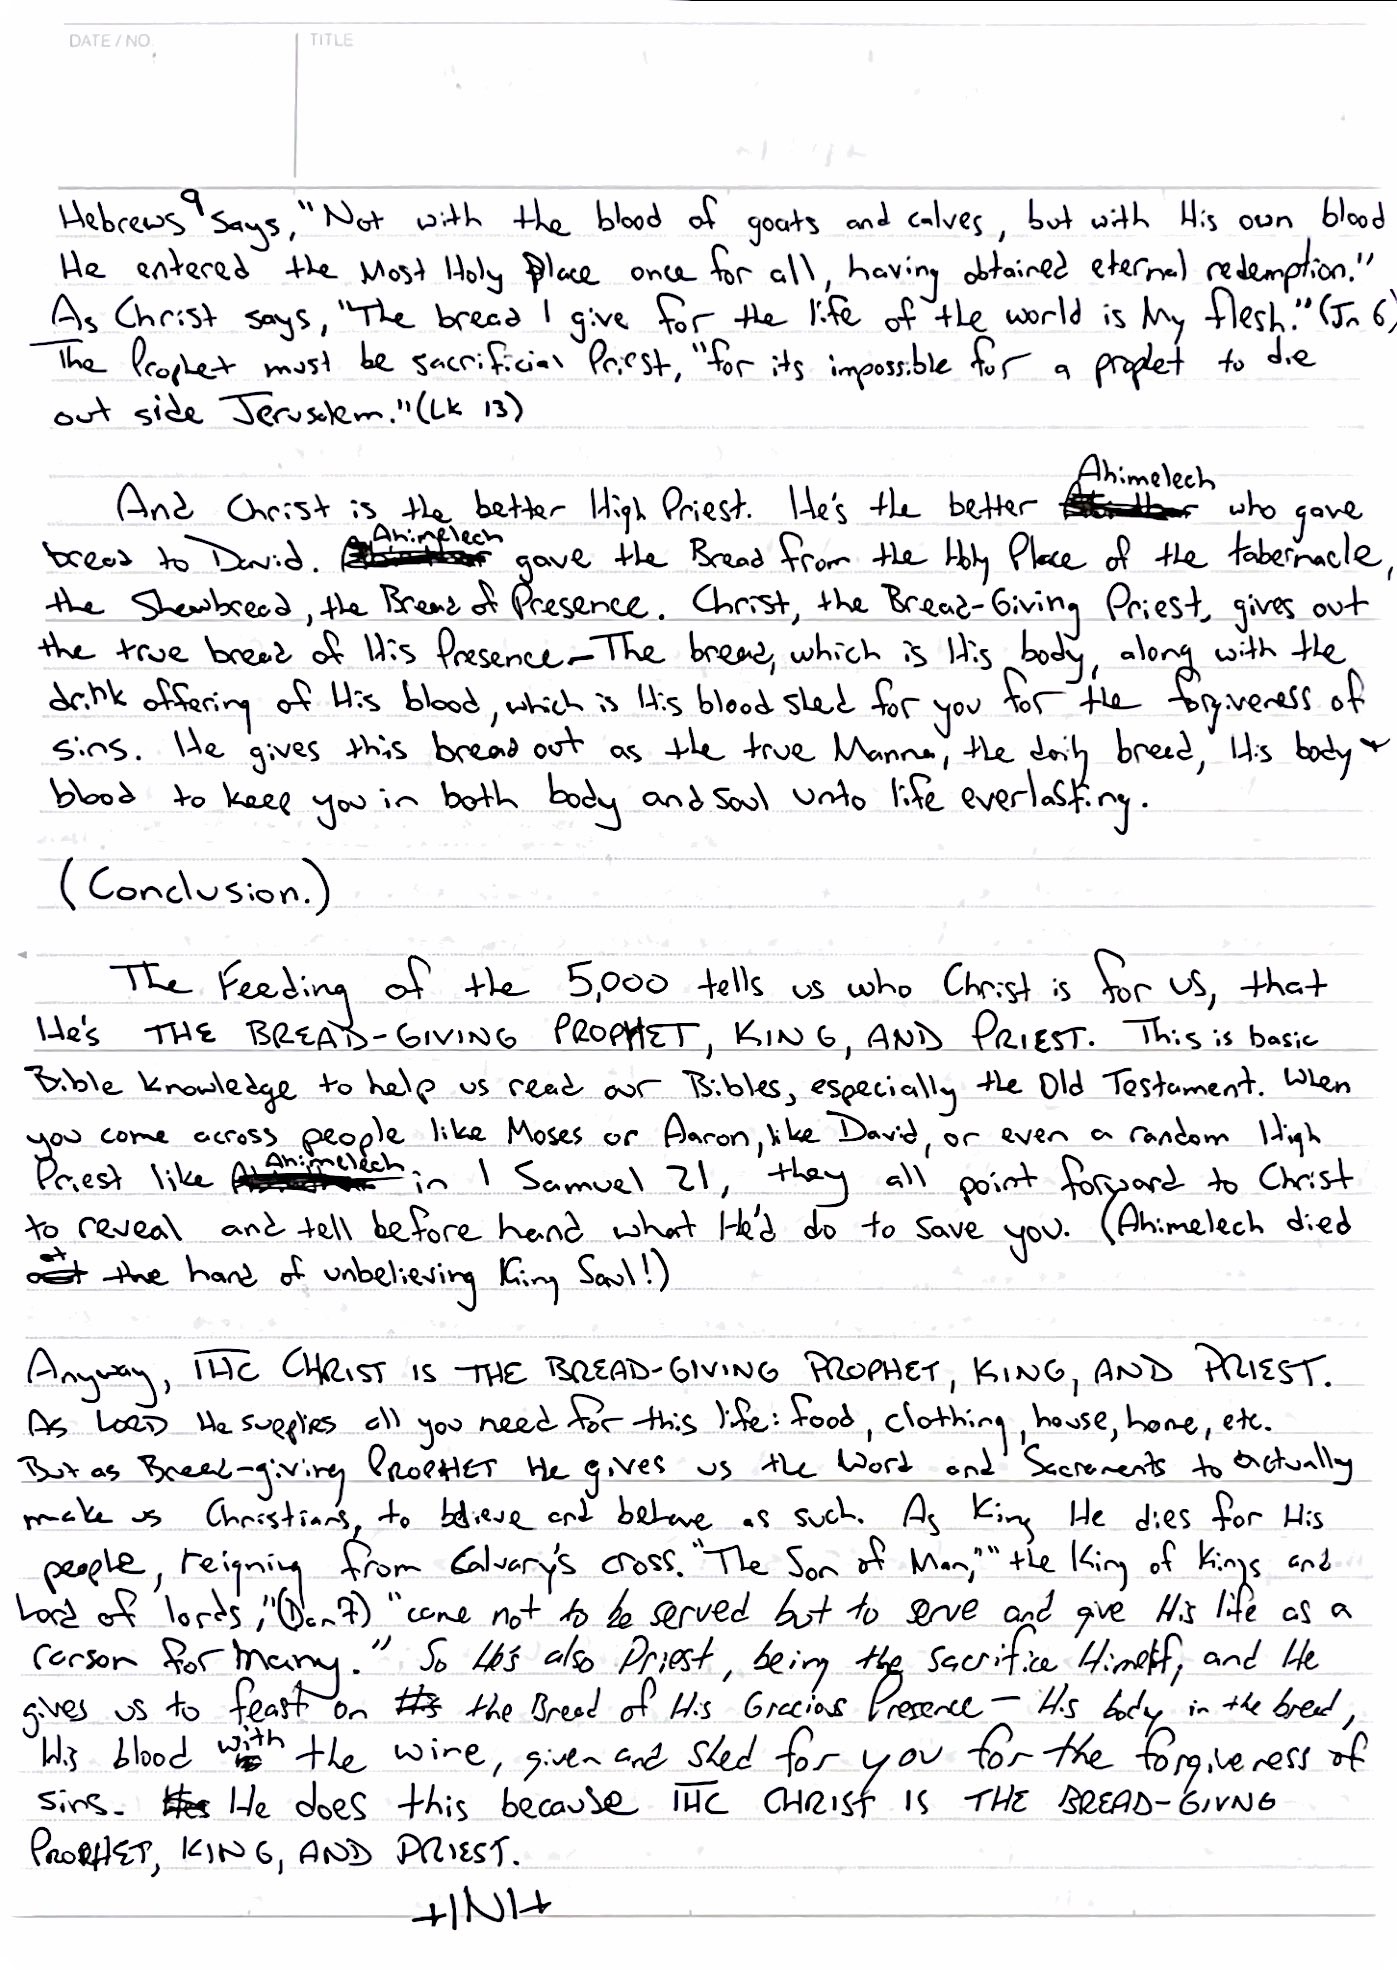 DATE / NO.
TITLE
Hebrews 9 says, "Not with the blood of goats and calves, but with His own blood
He entered the Most Holy Place once for all, having obtained eternal redemption."
As Christ says, "The bread I give for the life of the world is My flesh." (Jn 6)
The Prophet must be sacrificial Priest, "for its impossible for a prophet to die
out side Jerusalem." (Lk 13)
And Christ is the better High Priest. He's the better Ahimelech who gave
bread to David. Ahimelech gave the Bread from the Holy Place of the tabernacle,
the Shewbread, the Bread of Presence. Christ, the Bread-Giving Priest, gives out
the true bread of His Presence - The bread, which is His body, along with the
drink offering of His blood, which is His blood shed for you for the forgiveness of
sins. He gives this bread out as the true Manna, the daily bread, His body +
blood to keep you in both body and soul unto life everlasting.
(Conclusion.)
The Feeding of the 5,000 tells us who Christ is for us, that
He's THE BREAD-GIVING PROPHET, KING, AND PRIEST. This is basic
Bible knowledge to help us read our Bibles, especially the Old Testament. When
you come across people like Moses or Aaron, like David, or even a random High
Priest like Ahimelech in 1 Samuel 21, they all point forward to Christ
to reveal and tell before hand what He'd do to save you. (Ahimelech died
at the hand of unbelieving King Saul!)
Anyway, IHC CHRIST IS THE BREAD-GIVING PROPHET, KING, AND PRIEST.
As LORD He supplies all you need for this life: food, clothing, house, home, etc.
But as Bread-giving PROPHET He gives us the Word and Sacraments to actually
make us Christians, to believe and behave as such. As King He dies for His
people, reigning from Calvary's cross. "The Son of Man," "the King of Kings and
Lord of lords," (Dan 7) "came not to be served but to serve and give His life as a
ransom for many." So He's also Priest, being the sacrifice Himself, and He
gives us to feast on the Bread of His Gracious Presence - His body in the bread,
His blood with the wine, given and shed for you for the forgiveness of
sins. He does this because IHC CHRIST IS THE BREAD-GIVNG
PROPHET, KING, AND PRIEST.
+INI+